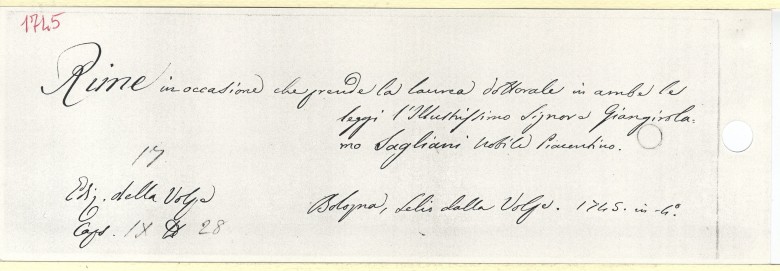 1745
Rime in occasione che prende la laurea dottorale in ambe le
leggi l'Illustrissimo Signore Giangirola-
mo Sagliani Nobile Piacentino.
17
Ediz. della Volpe
Bologna, Lelio dalla Volpe. 1745. in-4°.
Caps. IX 28